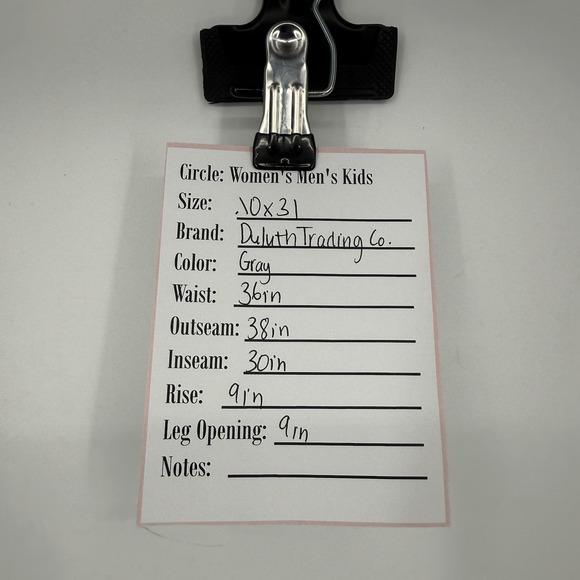 Circle: Women's Men's Kids
Size: 10x31
Brand: Duluth Trading Co.
Color: Gray
Waist: 36in
Outseam: 38in
Inseam: 30in
Rise: 9in
Leg Opening: 9in
Notes: